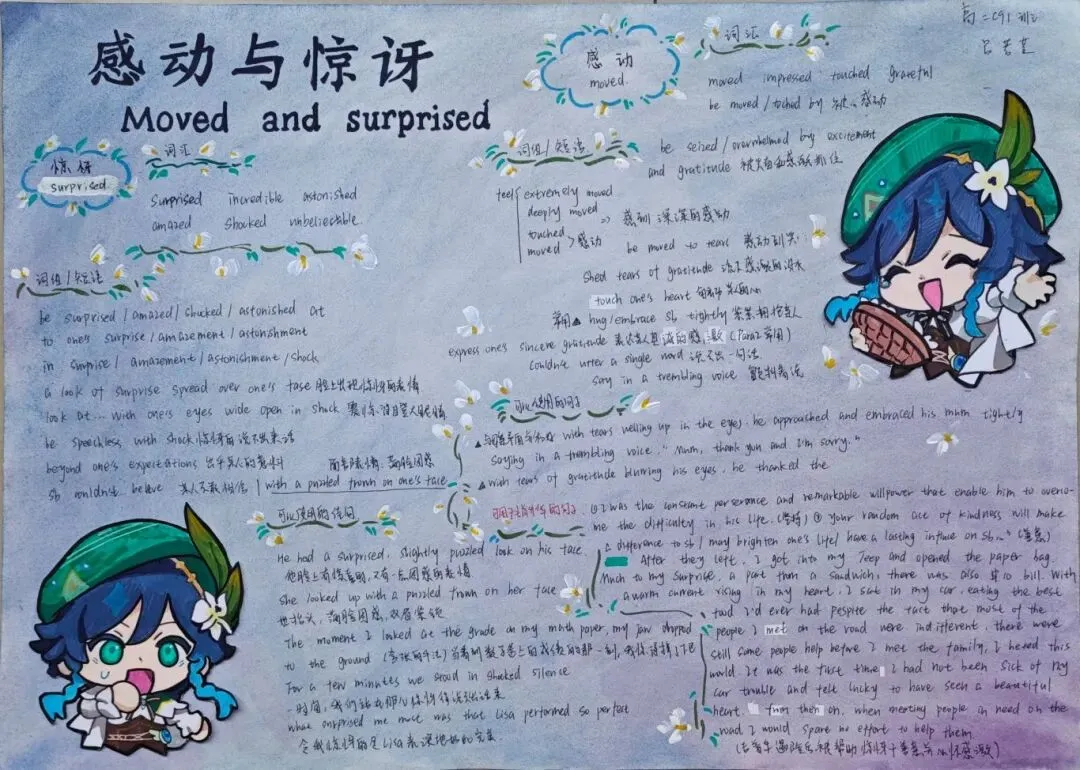 感动与惊讶
Moved and surprised
高二C91班
惊讶
surprised
词汇
surprised incredible astonished
amazed shocked unbelievable
词组/短语
be surprised/amazed/shocked/astonished at
to one's surprise/amazement/astonishment
in surprise/amazement/astonishment/shock
a look of surprise spread over one's face 脸上出现惊讶的表情
look at... with one's eyes wide open in shock
be speechless with shock 惊讶的说不出来话
beyond one's expectations 出乎某人的意料
sb couldn't believe 某人不敢相信
with a puzzled frown on one's face
可以使用的佳句
He had a surprised, slightly puzzled look on his face.
她脸上有惊喜的,又有一点困惑的表情
She looked up with a puzzled frown on her face
她抬头,满脸困惑,双眉紧锁
The moment I looked at the grade on my math paper, my jaw dropped
to the ground
For a few minutes we stood in shocked silence
what surprised me most was that Lisa performed so perfect
令我惊讶的是Lisa表演地如此完美
感动
moved
词汇
moved impressed touched grateful
be moved/touched by 被…感动
词组/短语
be seized/overwhelmed by excitement
and gratitude
feel extremely moved
deeply moved
touched
moved > 感动
=> 感到深深的感动
be moved to tears 感动到哭
shed tears of gratitude 流下感激的泪水
touch one's heart
常用▲ hug/embrace sb tightly 紧紧拥抱某人
express one's sincere gratitude 表达某人真诚的感激 (Para2常用)
Couldn't utter a single word 说不出一句话
say in a trembling voice 颤抖着说
可以使用的句子
with tears welling up in the eyes, he approached and embraced his mum tightly
saying in a trembling voice, "Mum, thank you and I'm sorry."
▲ with tears of gratitude blurring his eyes, he thanked the
was the constant perserance and remarkable willpower that enable him to overco-
me the difficulty in his life. ② your random act of kindness will make
a difference to sb/may brighten one's life/have a lasting influce on sb..."
After they left, I got into my Jeep and opened the paper bag.
Much to my surprise, a part from a sandwich, there was also $10 bill. With
a warm current rising in my heart, I sat in my car, eating the best
food I'd ever had. Despite the fact that most of the
people I met on the road were indifferent, there were
still some people help before I met the family, I hated this
world. It was the first time I had not been sick of my
car trouble and felt lucky to have seen a beautiful
heart. From then on, when meeting people in need on the
road I would spare no effort to help them.